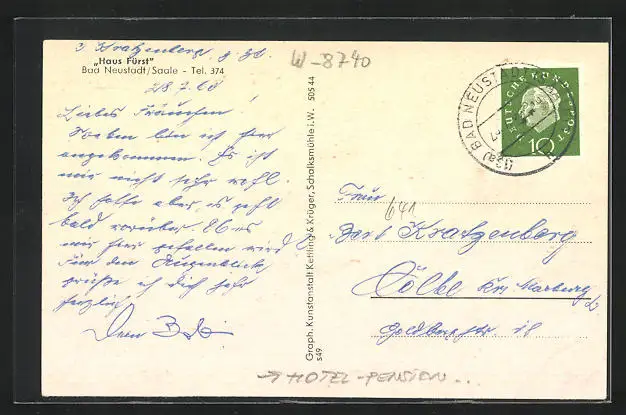 „Haus Fürst"
Bad Neustadt/Saale - Tel. 374
Kratzenberg z. Zt.
28.7.60
Liebes Frauchen!
Soeben bin ich hier
angekommen. Es ist
mir nicht sehr wohl
Ich hoffe aber es geht
bald vorüber. Ob es
mir hier gefallen wird
Für den Augenblick
grüße ich dich sehr
herzlich
Dein
W-8740
Graph. Kunstanstalt Kettling & Krüger, Schalksmühle i.W. 505 44
S49
BAD NEUSTADT
(13a)
DEUTSCHE BUNDESPOST
10
Frau
641
Kratzenberg
Cölbe Krs. Marburg
→ HOTEL-PENSION...